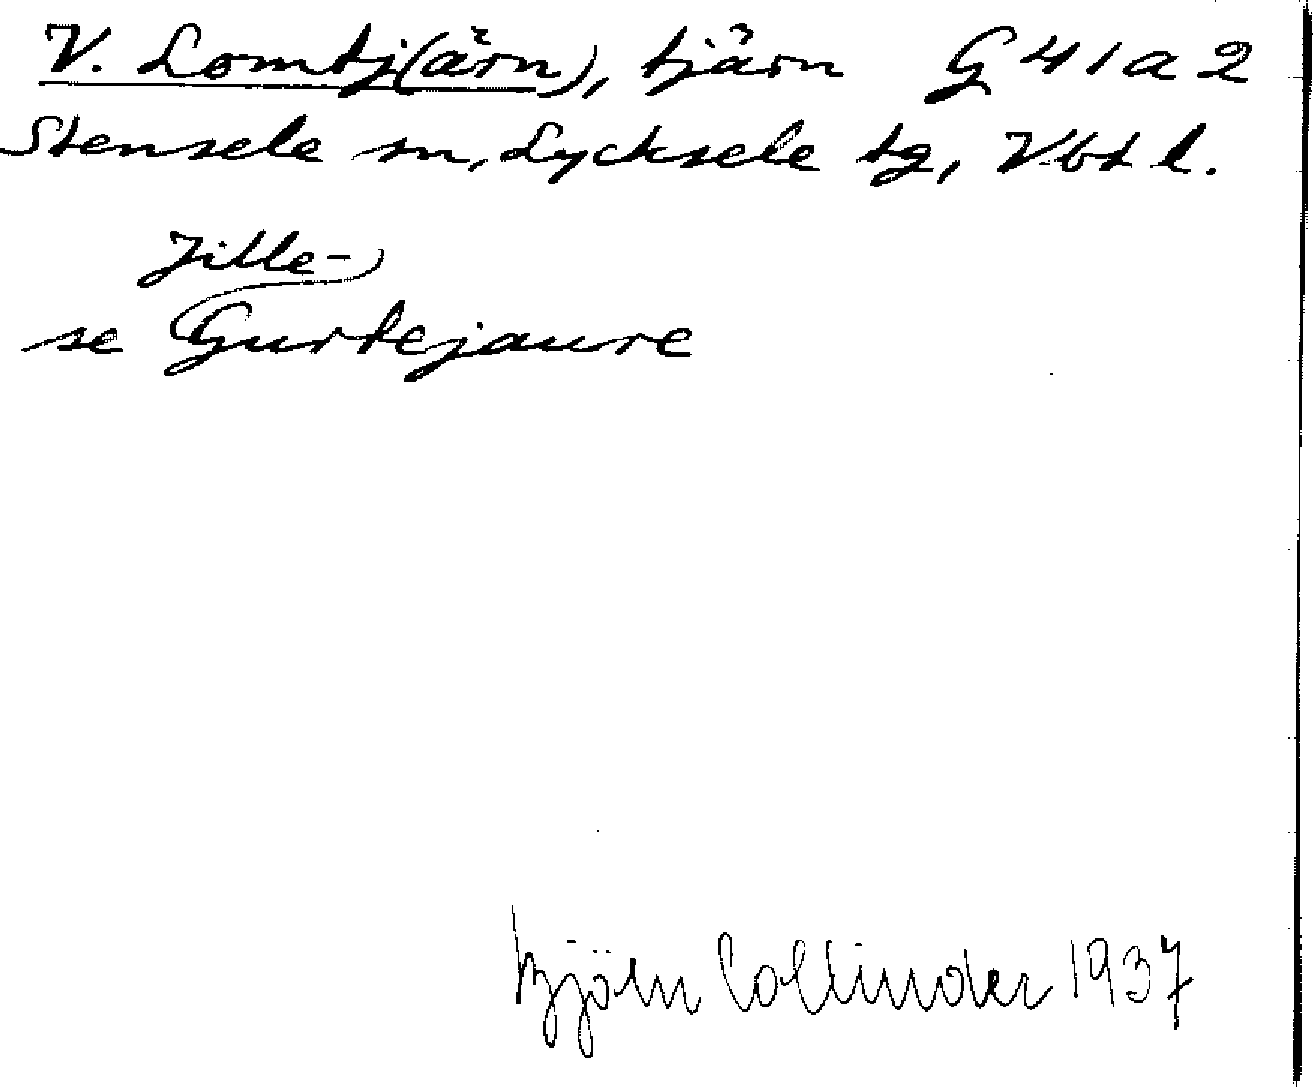 V. Lomtj(ärn), tjärn G 41 a 2
Stensele sn, Lycksele tg, Vbt l.
Jille-
se Gurtejaure
Björn Collinder 1937